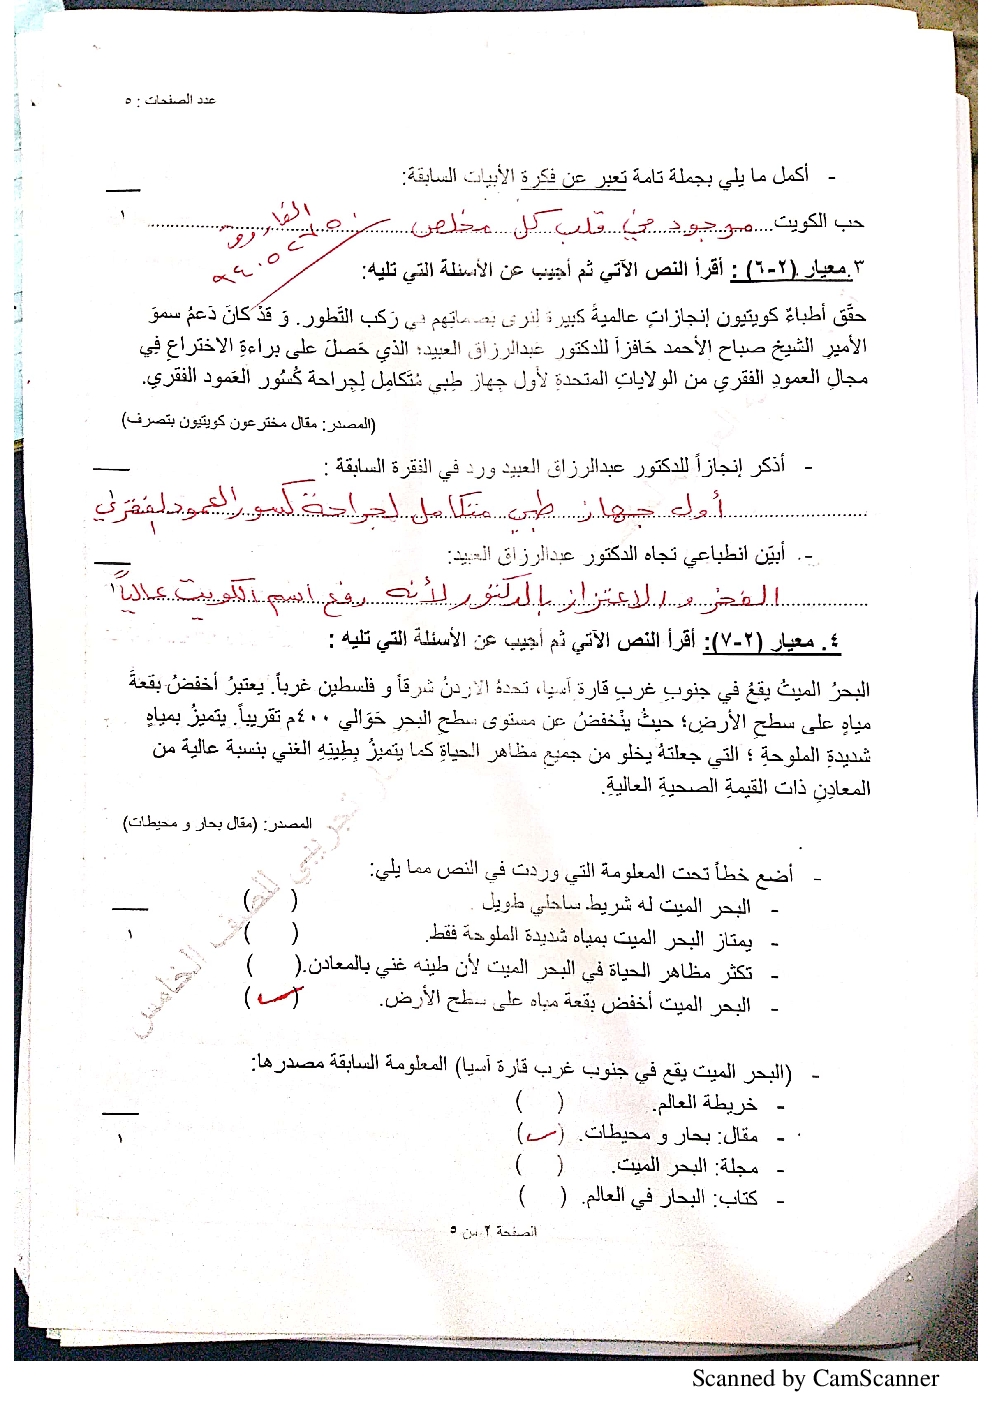 عدد الصفحات : ٥
- أكمل ما يلي بجملة تامة تعبر عن فكرة الأبيات السابقة:
حب الكويت موجود في قلب كل مخلص
١
٣. معيار (٢-٦) : أقرأ النص الآتي ثم أجيب عن الأسئلة التي تليه:
حقّق أطباءٌ كويتيون إنجازاتٍ عالميةً كبيرة لنرى بصماتِهم في رَكب التّطور. وَ قدْ كانَ دَعمُ سموَ
الأميرِ الشيخ صباح الأحمد حَافزاً للدكتور عَبدالرزاق العبيد؛ الذي حَصلَ على براءةِ الاختراع فِي
مجالِ العمودِ الفقري من الولاياتِ المتحدةِ لأول جِهاز طِبي مُتَكامِل لِجِراحة كُسُور العَمود الفقري.
(المصدر: مقال مخترعون كويتيون بتصرف)
- أذكر إنجازاً للدكتور عبدالرزاق العبيد ورد في الفقرة السابقة :
أول جهاز طبي متكامل لجراحة كسور العمود الفقري
١
-. أبيّن انطباعي تجاه الدكتور عبدالرزاق العبيد:
الفخر و الاعتزاز بالدكتور لأنه رفع اسم الكويت عالياً
١
٤. معيار (٢-٧): أقرأ النص الآتي ثم أجيب عن الأسئلة التي تليه :
البحرُ الميتُ يقعُ في جنوبِ غربِ قارة آسيا، تحدهُ الاردنُ شرقاً و فلسطين غرباً. يعتبرُ أخفضُ بقعةَ
مياهٍ على سطحِ الأرضِ؛ حيثُ ينْخفضُ عن مستوى سطحِ البحرِ حَوَالي ٤٠٠م تقريباً. يتميزُ بمياهٍ
شديدةِ الملوحةِ ؛ التي جعلتهُ يخلو من جميعِ مظاهر الحياةِ كما يتميزُ بِطِينِهِ الغني بنسبة عالية من
المعادِنِ ذات القيمةِ الصحيةِ العاليةِ.
المصدر: (مقال بحار و محيطات)
- أضع خطاً تحت المعلومة التي وردت في النص مما يلي:
- البحر الميت له شريط ساحلي طويل . ( )
- يمتاز البحر الميت بمياه شديدة الملوحة فقط. ( )
١
- تكثر مظاهر الحياة في البحر الميت لأن طينه غني بالمعادن. ( )
- البحر الميت أخفض بقعة مياه على سطح الأرض. (✓)
- (البحر الميت يقع في جنوب غرب قارة آسيا) المعلومة السابقة مصدرها:
- خريطة العالم. ( )
- مقال: بحار و محيطات. (✓)
١
- مجلة: البحر الميت. ( )
- كتاب: البحار في العالم. ( )
الصفحة ٢ من ٥
Scanned by CamScanner